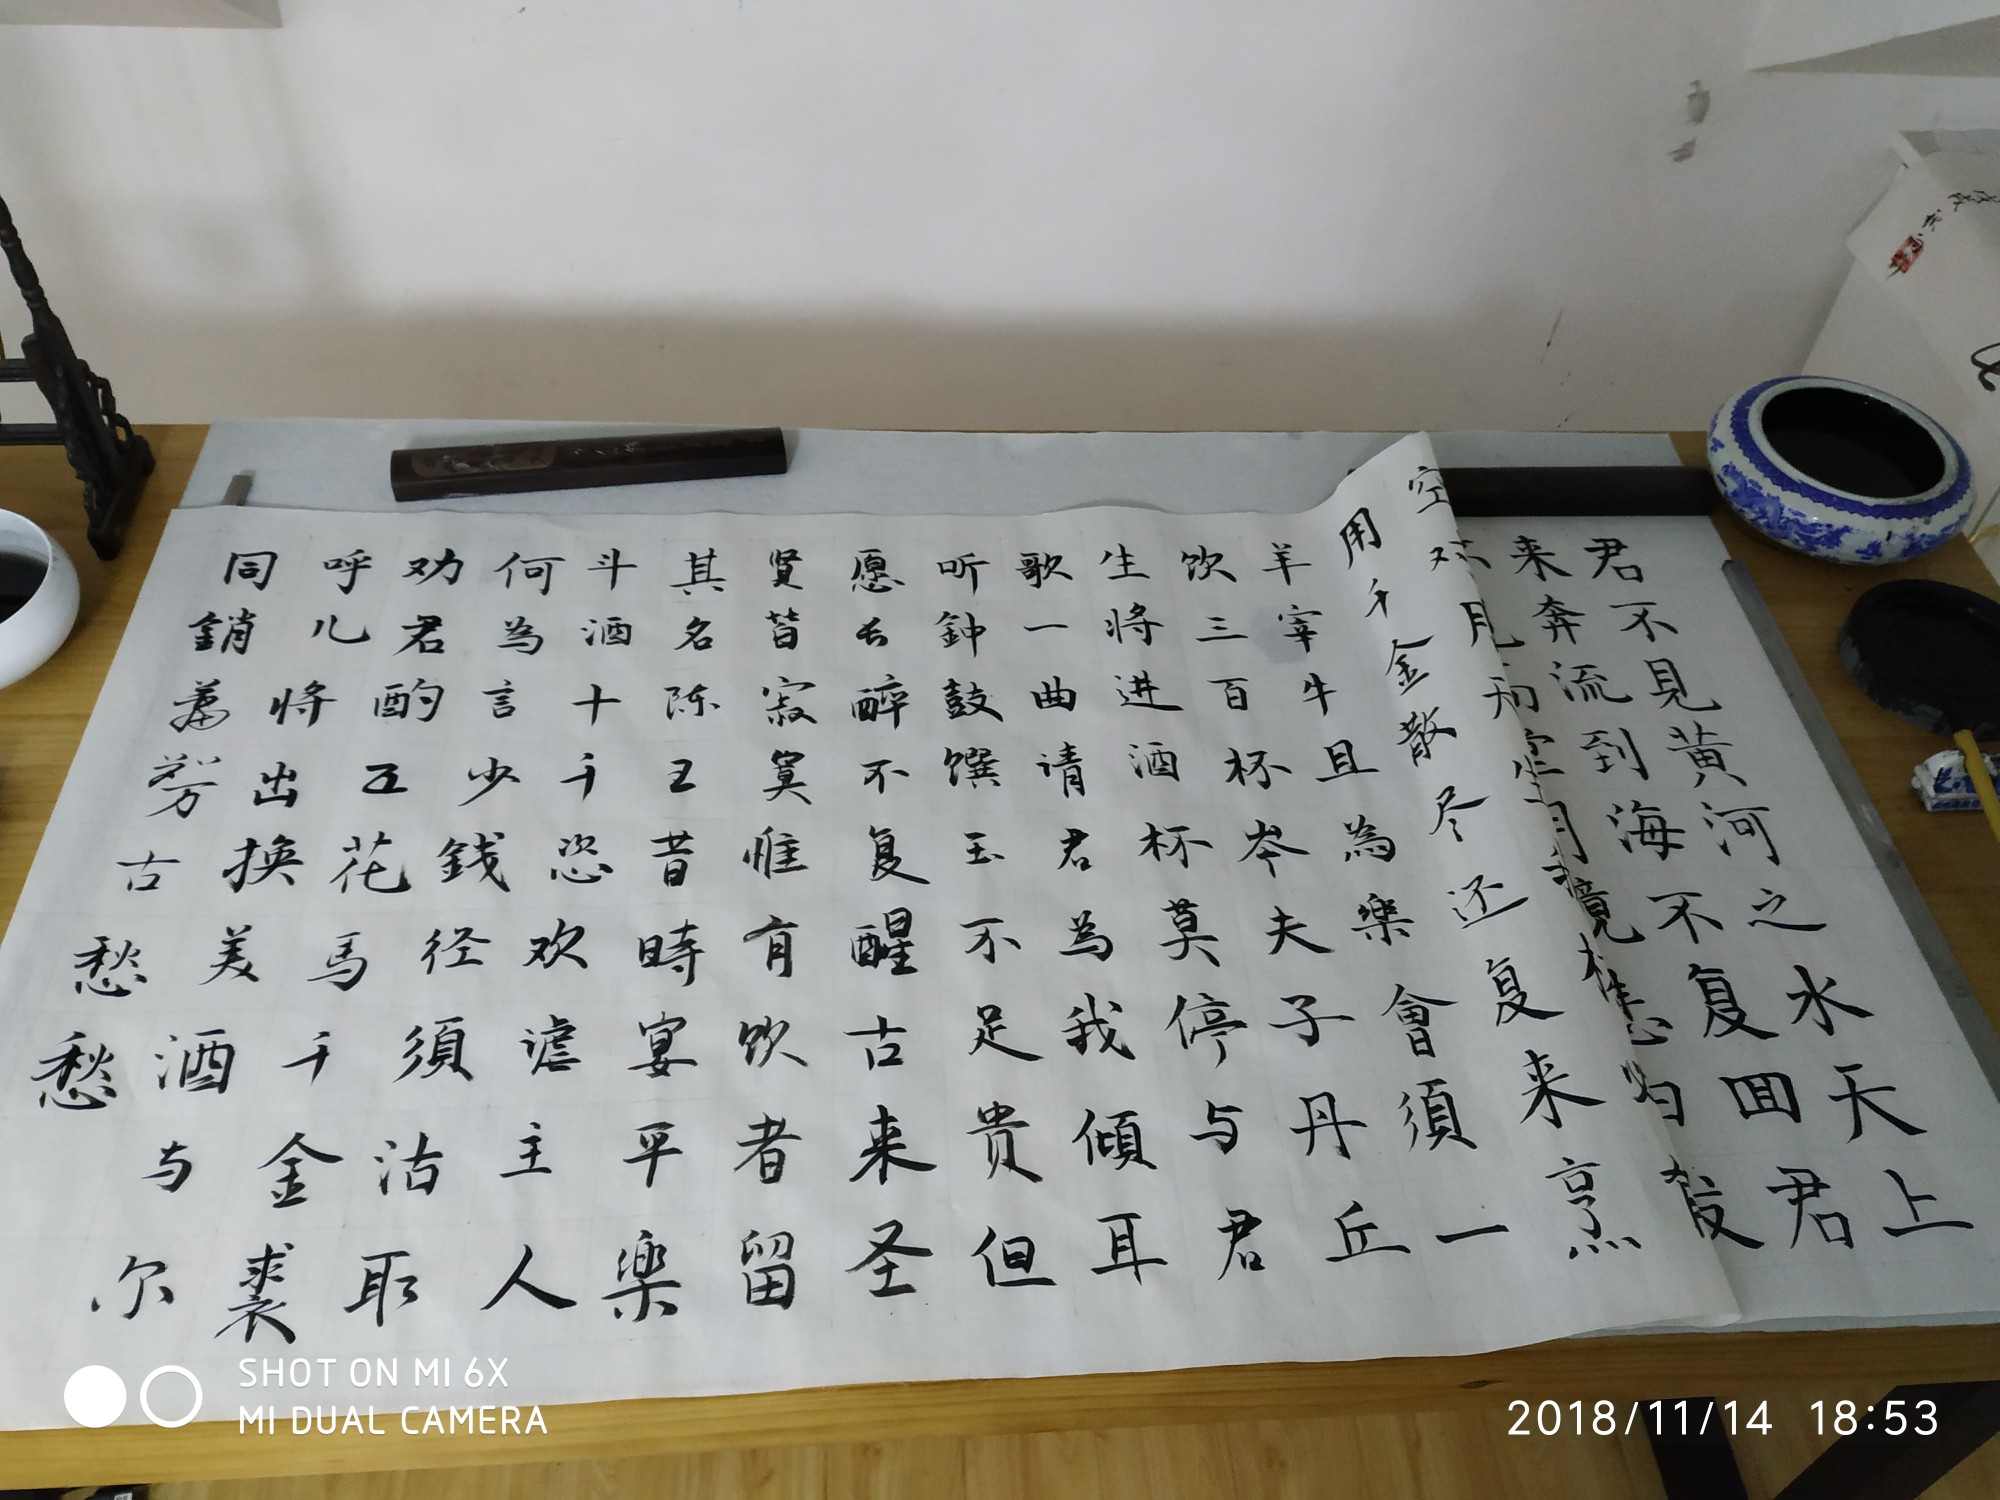 君不見黄河之水天上
来奔流到海不复回君
镜悲白发
空
用千金散尽还复来烹
羊宰牛且為樂會須一
饮三百杯岑夫子丹丘
生将进酒杯莫停与君
歌一曲请君為我傾耳
听鈡鼓馔玉不足贵但
愿长醉不复醒古来圣
贤皆寂寞惟有饮者留
其名陈王昔時宴平樂
斗酒十千恣欢谑主人
何為言少錢径須沽取
劝君酌五花馬千金裘
呼儿将出换美酒与尔
同銷萬古愁愁
SHOT ON MI 6X
MI DUAL CAMERA
2018/11/14 18:53